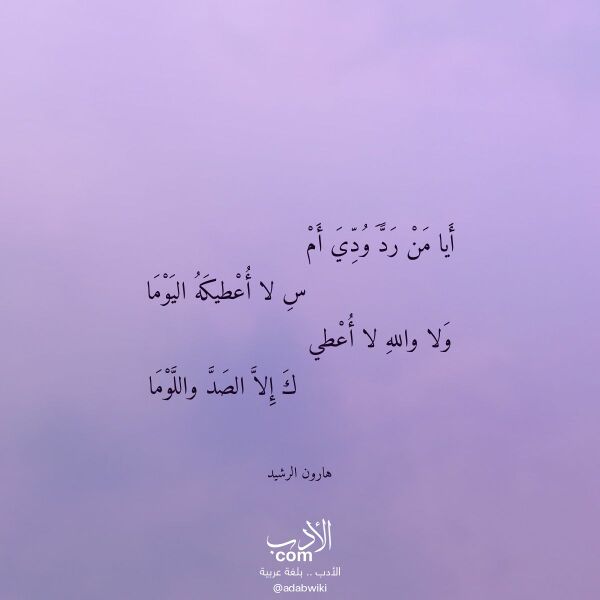 أَيا مَنْ رَدَّ وُدِّيَ أَمْ
سِ لا أُعْطيكَهُ اليَوْمَا
وَلا واللهِ لا أُعْطي
كَ إِلاَّ الصَدَّ واللَّوْمَا
هارون الرشيد
الأدب
.com
الأدب .. بلغة عربية
@adabwiki